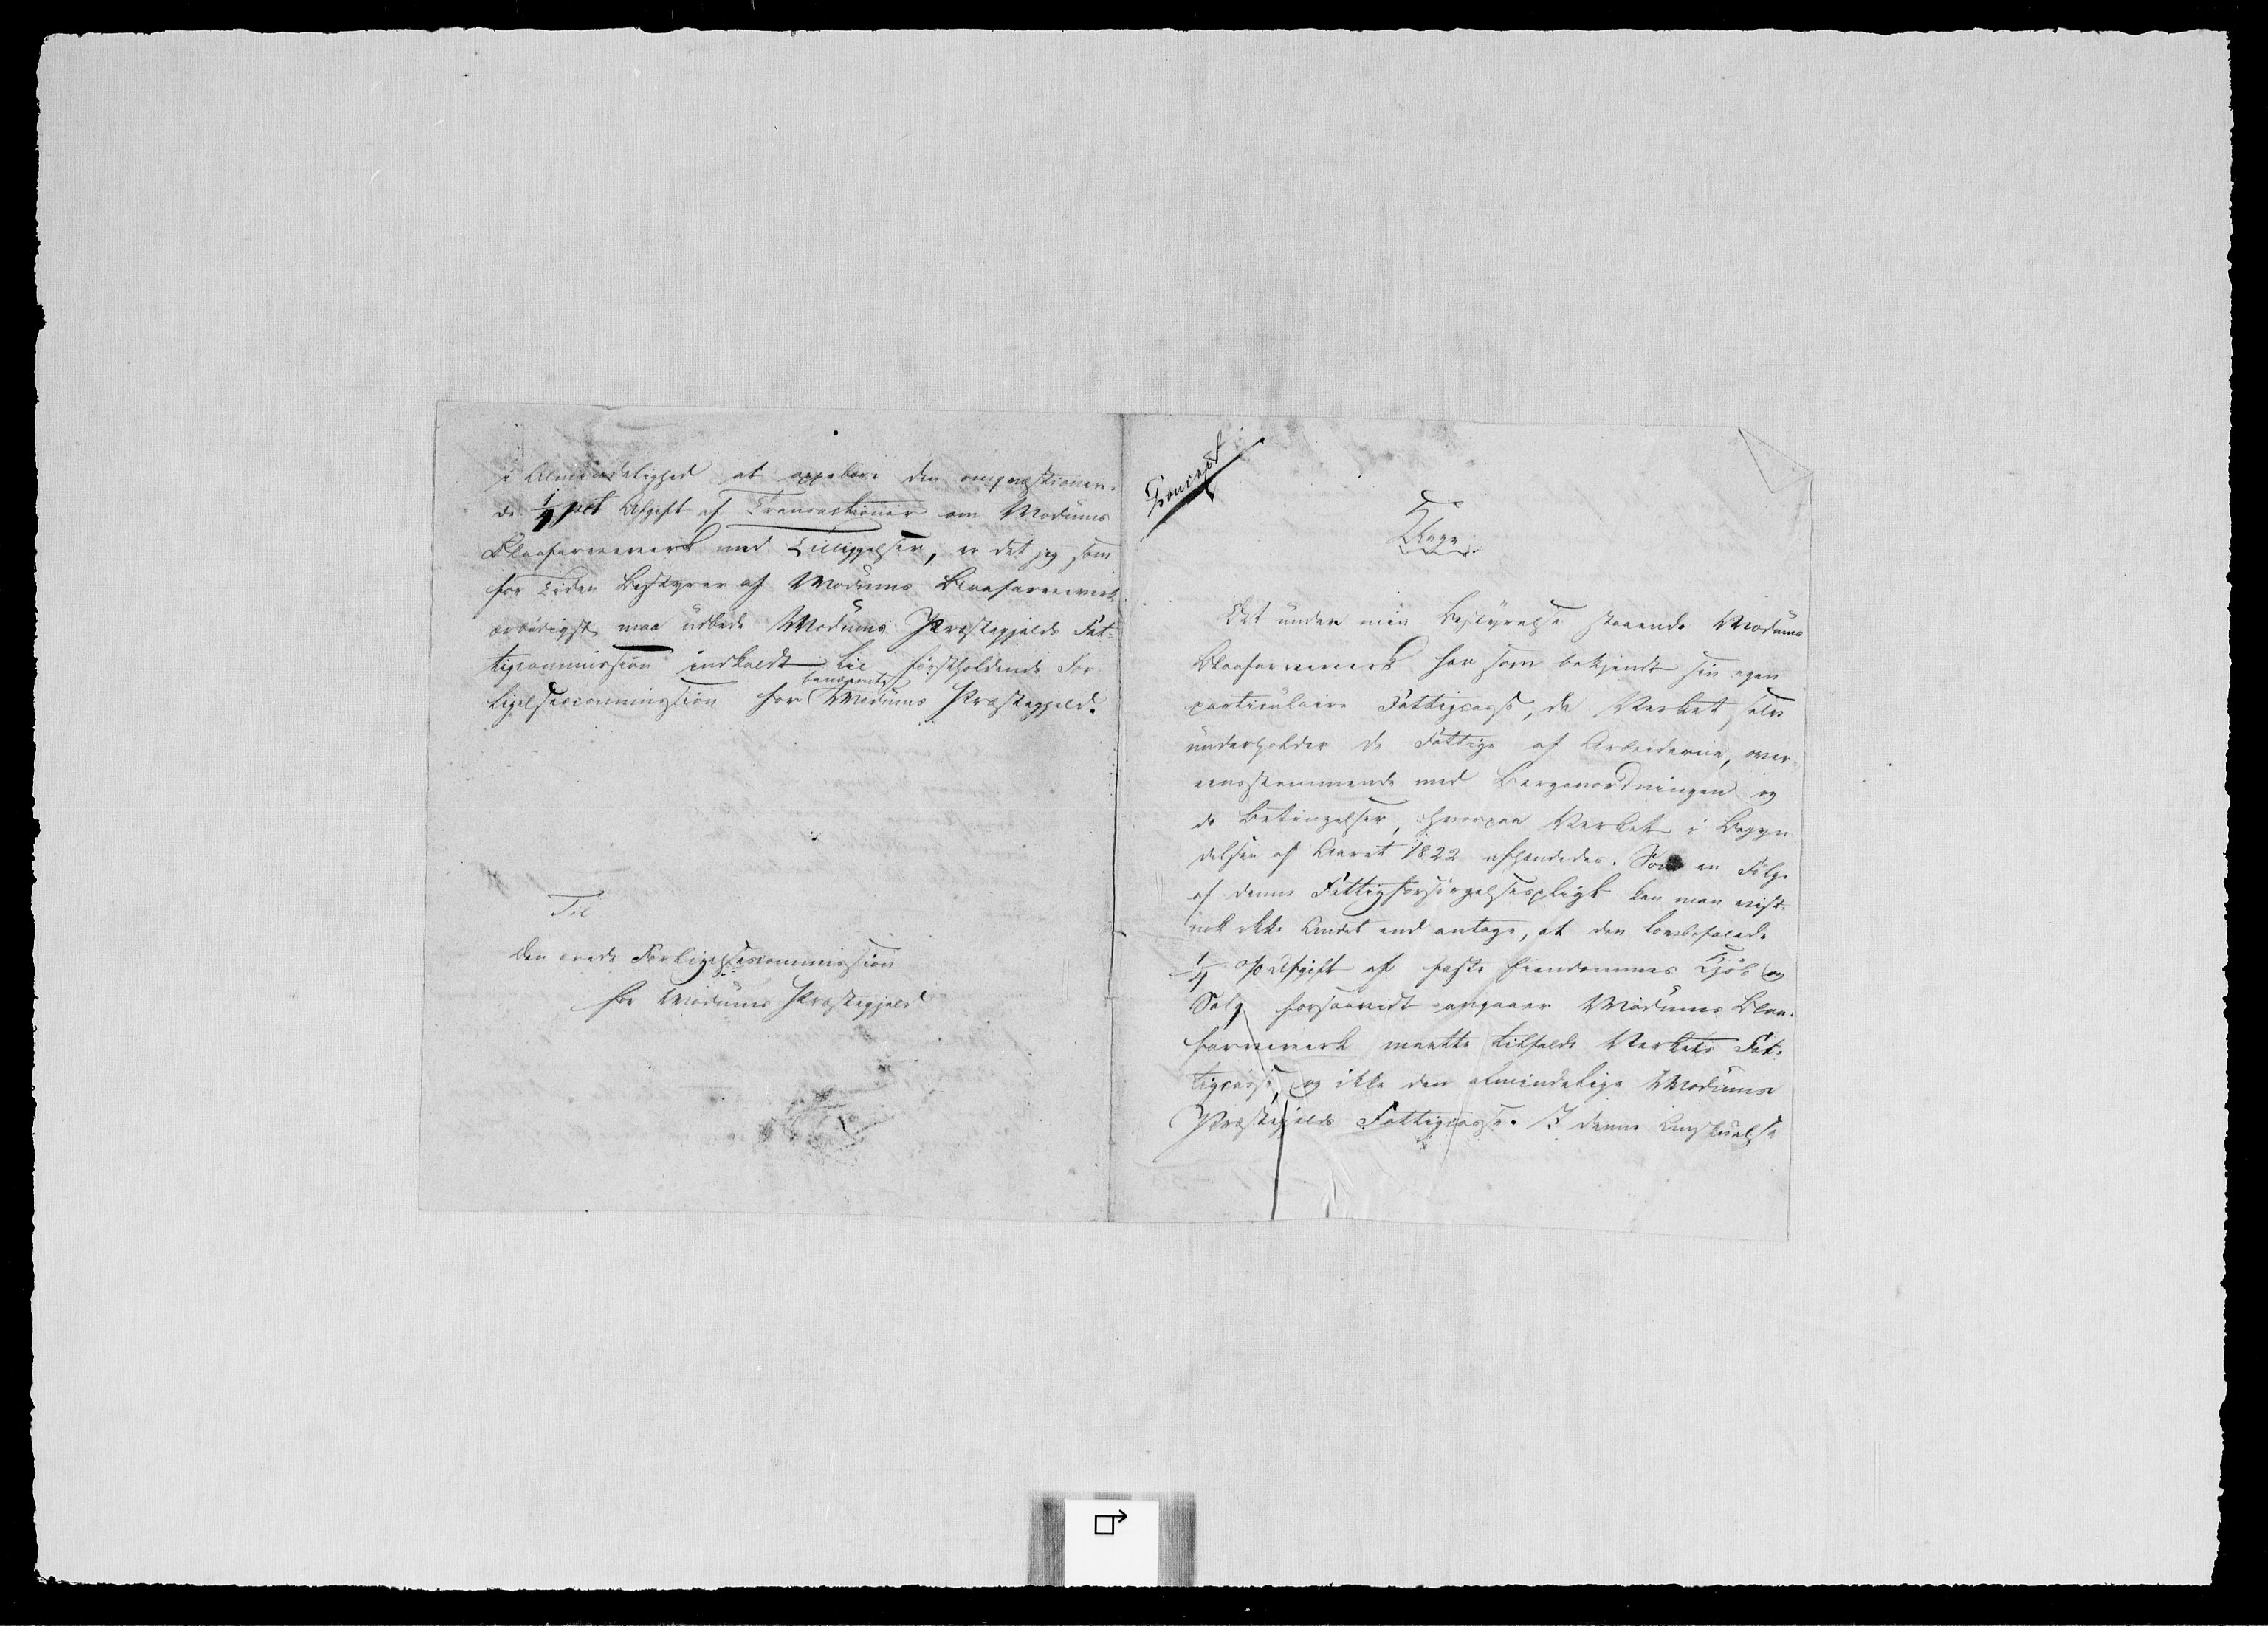 i Almindelighed at oppebære den omqvæstionere-
de 1/4 pct Afgift af Transactioner om Modums
Blaafarveværk med Tilliggelser, er det jeg som
for Tiden Bestyrer af Modums Blaafarveværk
ærbødigst maa udbede Modums Præstegjelds Fat-
tigcommission indkaldt til førstholdende For-
ligelsescommission for bemeldte Modums Præstegjeld.
Til
Den ærede Forligelsescommission
for Modums Præstegjeld
Concept
Klage
Det under min Bestyrelse staaende Modums
Blaafarveværk har som bekjendt sin egen
particulaire Fattigcasse, da Værket selv
underholder de Fattige af Arbeiderne, over-
eensstemmende med Berganordningen og
de Betingelser, hvorpaa Værket i Begyn-
delsen af Aaret 1822 afhændedes. Som en Følge
af denne Fattigforsørgelsespligt kan man vist-
nok ikke Andet end antage, at den lovbefalede
1/4 % Afgift af faste Eiendommes Kjøb og
Salg forsaavidt angaaer Modums Blaa-
farveværk maatte tilfalde Værkets Fat-
tigcasse, og ikke den almindelige Modums
Præstegjelds Fattigcasse. I denne Anskuelse